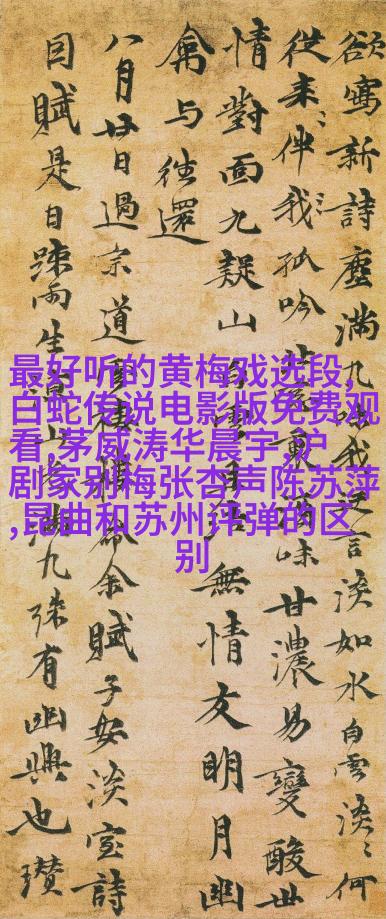 欲寫新詩塵滿几
言淡如水白雲淡〻何
從来〻伴我〻孤吟
味甘濃易變酸世
情對面九疑山
無情友明月幽
禽与往還
八月廿日過宗道
命余賦子安淡室詩
因賦是日疎雨生
九殊有幽興也瓚
最好听的黄梅戏选段,
白蛇传说电影版免费观
看,茅威涛华晨宇,沪
剧家别梅张杏声陈苏萍
,昆曲和苏州评弹的区
别